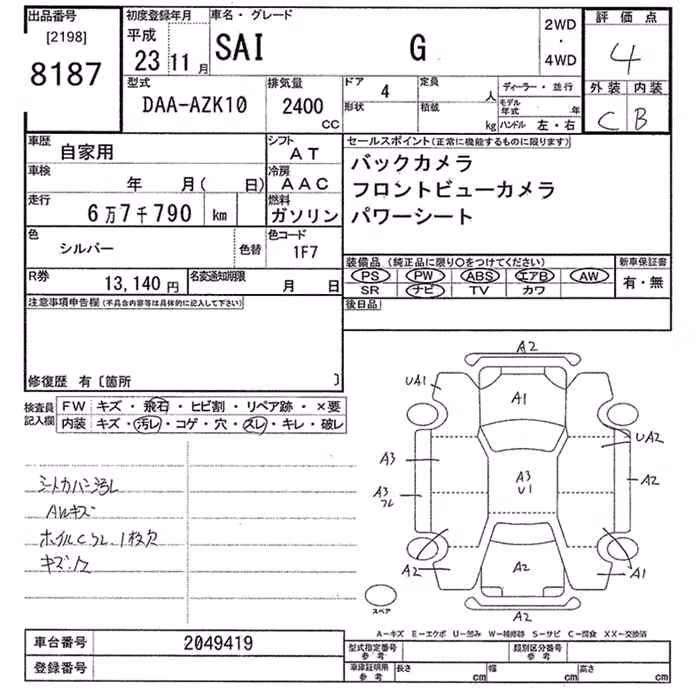 出品番号
[2198]
8187
初度登録年月
平成
23 11月
車名・グレード
SAI G
2WD
・
4WD
評価点
4
外装 内装
C B
型式
DAA-AZK10
排気量
2400
CC
ドア
4
形状
定員
人
積載
kg
ディーラー・並行
モデル年式 年
ハンドル 左・右
車歴
自家用
シフト
AT
車検
年 月( 日)
冷房
AAC
走行
6万7千790 km
燃料
ガソリン
色
シルバー
色替
色コード
1F7
R券
13,140円
名変通知期限
月 日
セールスポイント(正常に機能するものに限ります)
バックカメラ
フロントビューカメラ
パワーシート
装備品(純正品に限り○をつけてください)
PS PW ABS エアB AW
SR ナビ TV カワ
新車保証書
有・無
後日品
注意事項申告欄(不具合内容等は具体的に記入して下さい)
修復歴 有〔箇所 〕
検査員
記入欄
FW キズ・飛石・ヒビ割・リペア跡・×要
内装 キズ・汚レ・コゲ・穴・スレ・キレ・破レ
シートカバー汚レ
AWキズ
ホイルCスレ、1枚欠
A2
UA1
A1
UA2
A3
A3
U1
A2
A3
フレ
A2
A2
A1
A2
スペア
A－キズ E－エクボ U－凹み W－補修跡 S－サビ C－腐食 XX－交換済
車台番号
2049419
登録番号
型式指定番号
参考
類別区分番号
参考
車庫証明用
参考
長さ cm
幅 cm
高さ cm